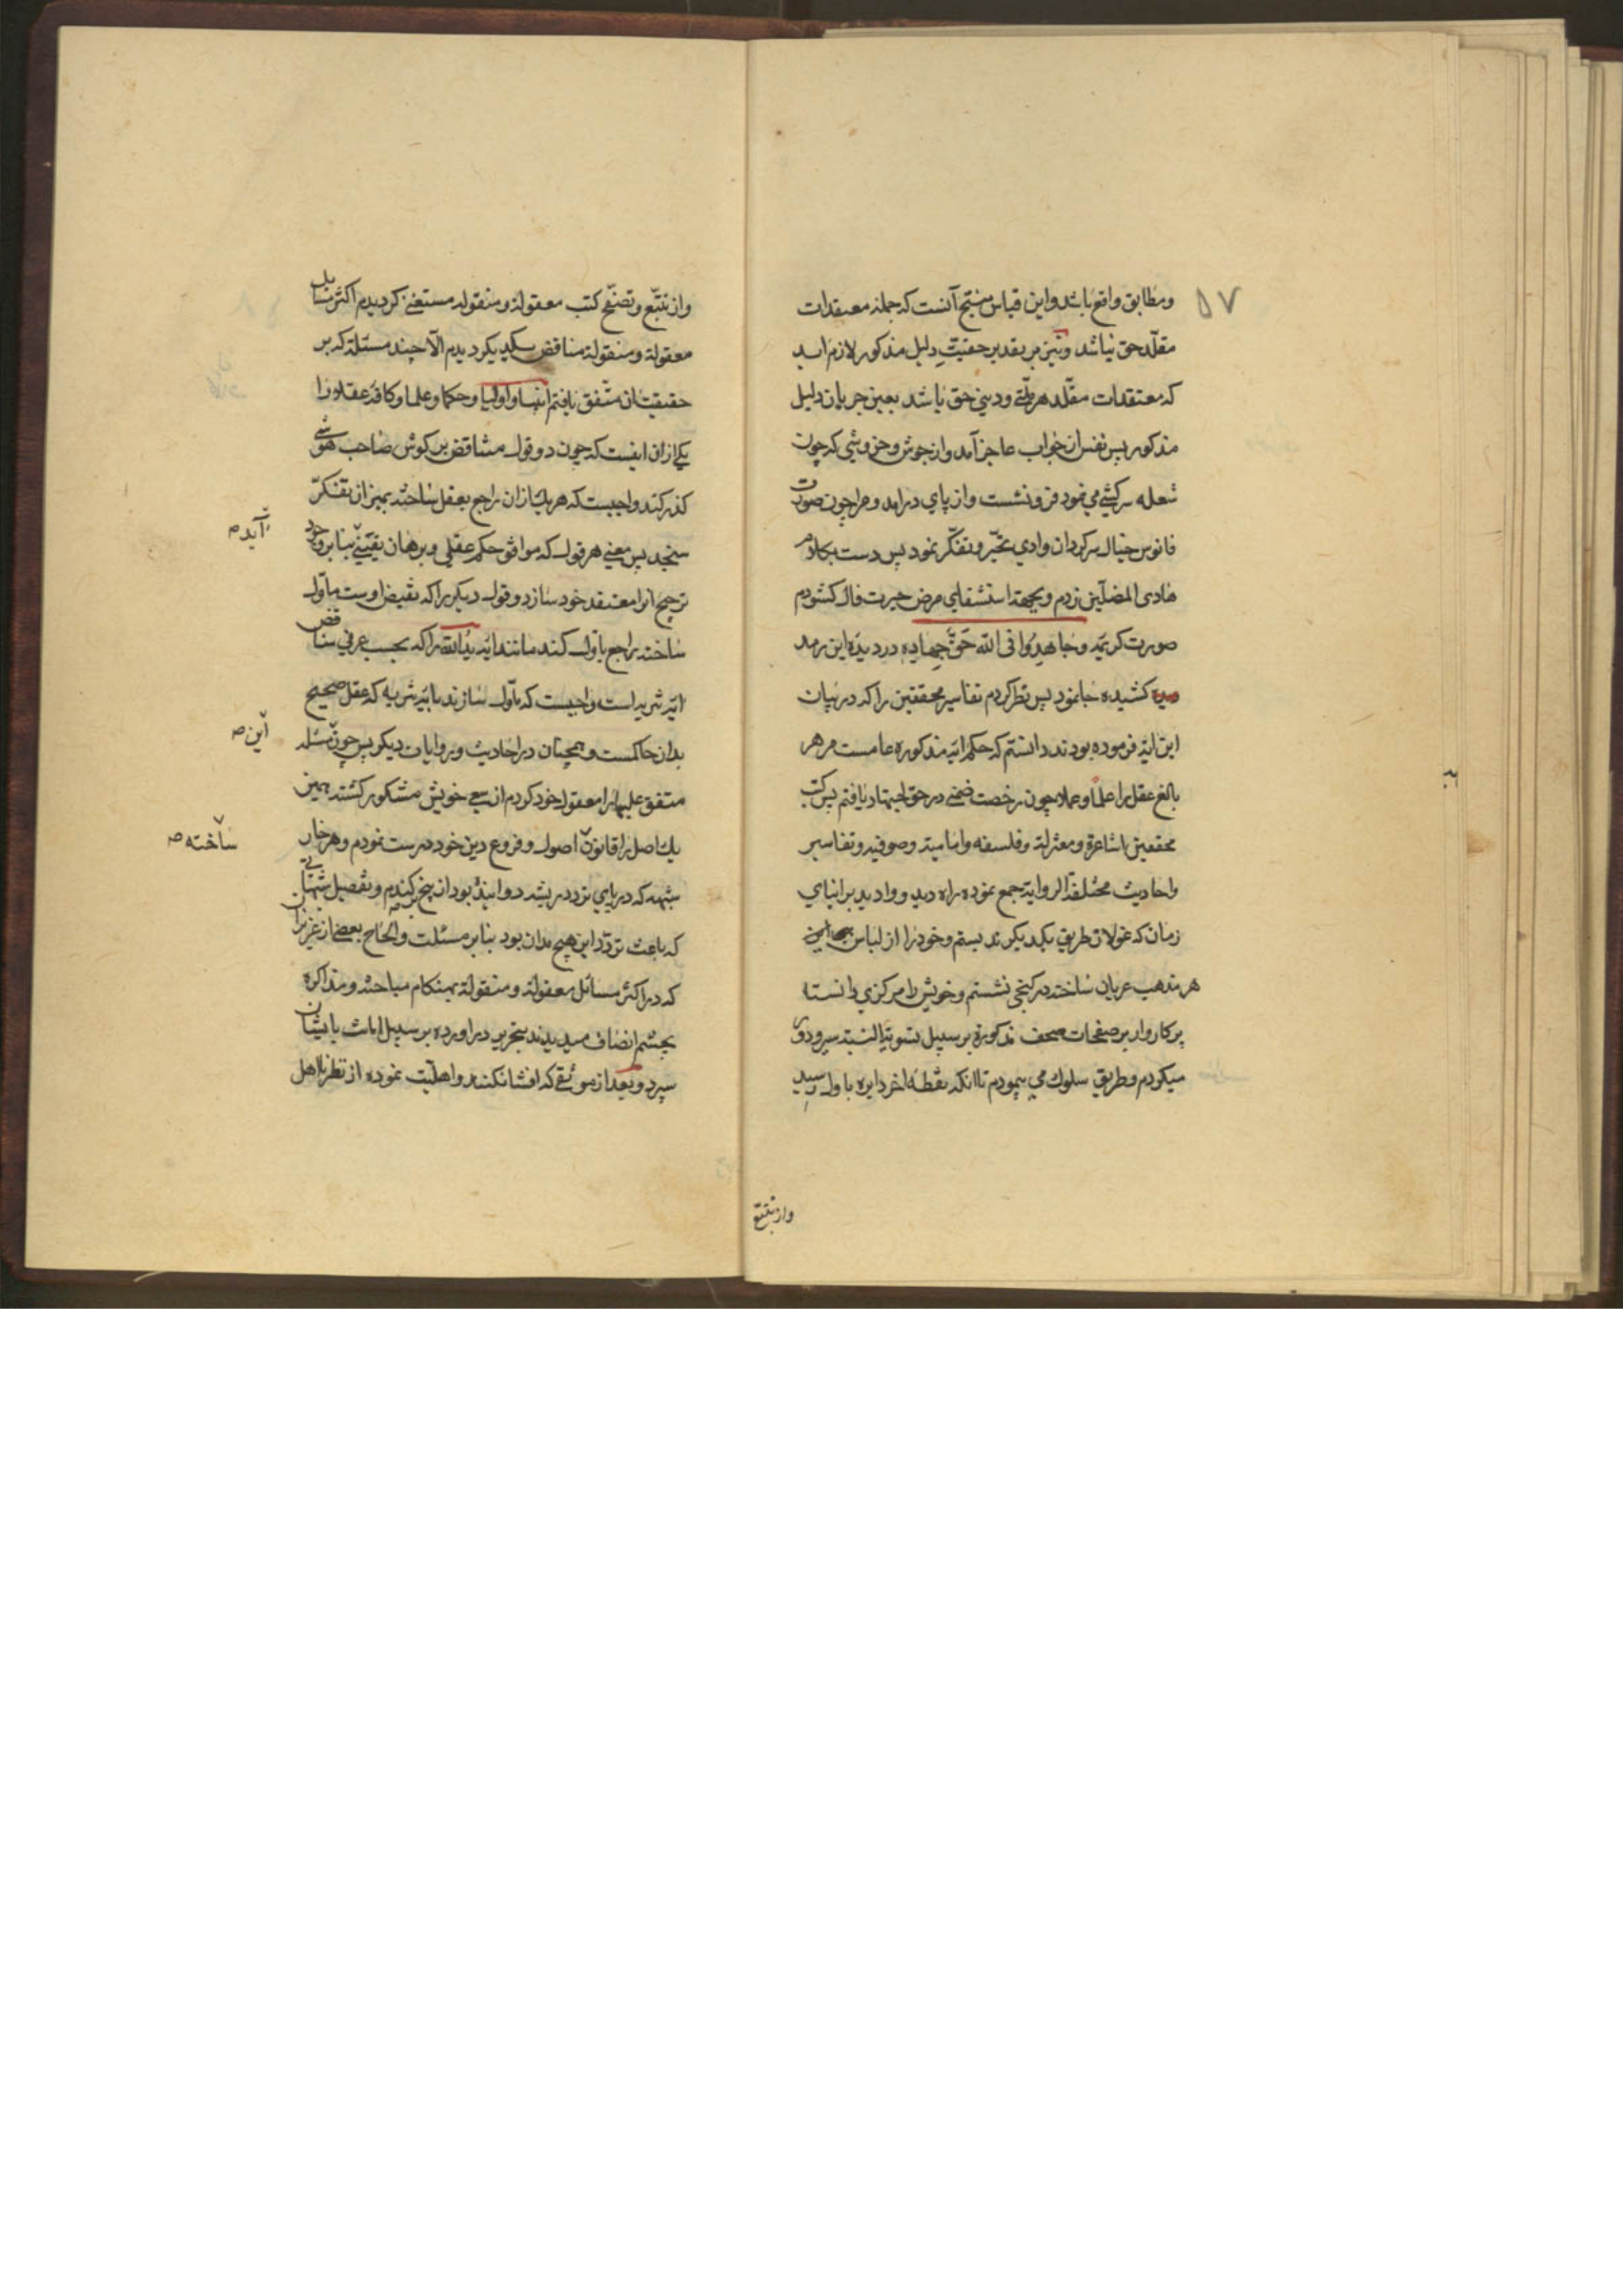 ۵۷
ومطابق واقع باشد واین قیاس منتج آنست که جمله معتقدات
مقلد حق نباشد ونیز بر تقدیر حقیت دلیل مذکور لازم اید
که معتقدات مقلد هر ملتی ودینی حق باشد بعین جریان دلیل
مذکور پس نفس از جواب عاجز آمد واز جوش وخروشی که چون
شعله سرکشی می نمود فرو نشست واز پای درامد ومرا چون صورت
فانوس خیال سرکردان وادی تحیر وتفکر نمود پس دست بکلام
هادی المضلین زدم وبجهة استشفای مرض حیرت فال کشودم
صورت کریمه وجاهدوا فی الله حق جهاده در دیده این رمد
کشیده جا نمود پس نظر کردم تفاسیر محققین را که در بیان
این ایة فرموده بودند دانستم که حکم ایه مذکوره عامست مر هر
بالغ عقل را علما وعملا چون رخصت ضمنی در حق اجتهاد یافتم پس کتب
محققین اشاعرة ومعتزلة وفلسفه وامامیة وصوفیه وتفاسیر
واحادیث مختلفة الروایة جمع نموده راه دید ووادید بر ابنای
زمان که غولان طریق یکدیکرند بستم وخود را از لباس
هر مذهب عریان ساخته در کنجی نشستم وخویش را مرکزی دانسته
پرکار وار بر صفحات صحف مذکورة بر سبیل تسویة النسبة سیر ودوری
میکردم وطریق سلوک می پیمودم تا انکه نقطه اخر دایره باول رسید
واز تتبع
واز تتبع وتصفح کتب معقولة ومنقوله مستغنی کردیدم اکثر مسایل
معقولة ومنقولة مناقض یکدیکر دیدم الا چند مسئلة که بر
حقیقت ان متفق یافتم انبیا واولیا وحکما وعلما وکافه عقلا را
یکی ازان اینست که چون دو قول متناقض بر کوش صاحب هوشی
کذر کند واجبست که هر یک ازان راجع بعقل ساخته بمیزان تفکر
سنجد پس معنی هر قول که موافق حکم عقلی وبرهان یقینی بنابر وجود
آید صح
ترجیح انرا معتقد خود سازد وقول دیکر را که نقیض اوست ماول
ساخته راجع باول کند مانند ایه ید الله را که بحسب عرفی مناقض
ایة تنزیه است واجبست که ماول سازند بایة تنزیه که عقل صحیح
بدان حاکمست وهمچنان در احادیث وروایات دیکر پس چون مسئله
این صح
متفق علیها را معقول خود کردم از سعی خویش مشکور کشته همین
یک اصل را قانون اصول وفروع دین خود درست نمودم وهر خار
ساخته صح
شبهه که در پای تردد ریشه دوانیده بود از بیخ بر کندم وتفصیل شبهاتی
که باعث تردد این هیچ مدان بود بنابر مسئلت والحاح بعضی از عزیزان
که در اکثر مسائل معقولة ومنقولة بهنکام مباحثه ومذاکره
بچشم انصاف میدیدند بتحریر در اورده بر سبیل امانت بایشان
سپرد وبعد از موثقی که افشا نکنند واهلیت نموده از نظر نا اهل